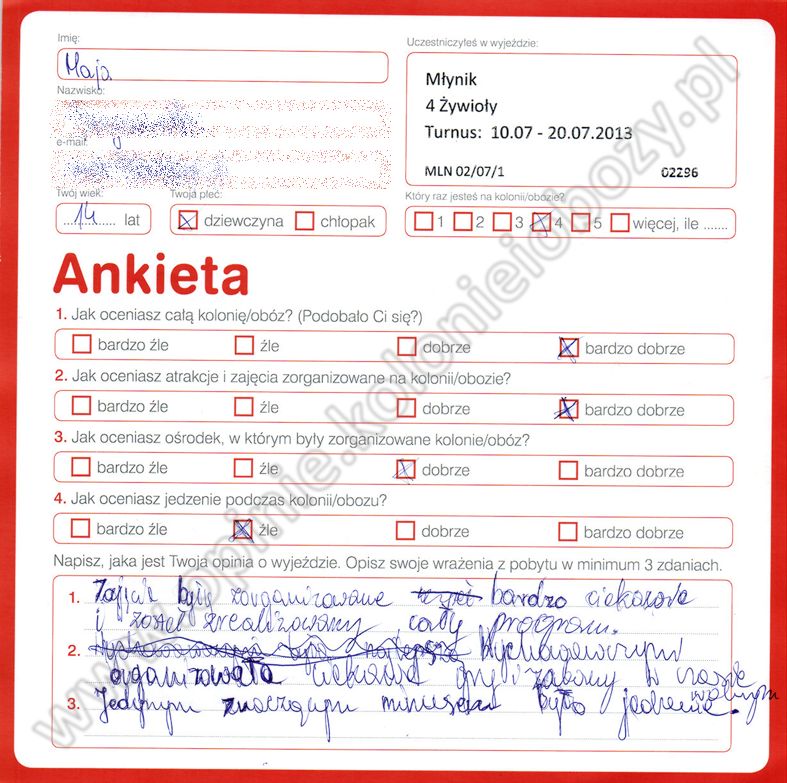 Imię:
Maja
Uczestniczyłeś w wyjeździe:
Młynik
4 Żywioły
Turnus: 10.07 - 20.07.2013
MLN 02/07/1 02296
Nazwisko:
e-mail:
Twój wiek:
14 lat
Twoja płeć:
dziewczyna chłopak
Który raz jesteś na kolonii/obozie?
1 2 3 4 5 więcej, ile .......
Ankieta
1. Jak oceniasz całą kolonię/obóz? (Podobało Ci się?)
bardzo źle źle dobrze bardzo dobrze
2. Jak oceniasz atrakcje i zajęcia zorganizowane na kolonii/obozie?
bardzo źle źle dobrze bardzo dobrze
3. Jak oceniasz ośrodek, w którym były zorganizowane kolonie/obóz?
bardzo źle źle dobrze bardzo dobrze
4. Jak oceniasz jedzenie podczas kolonii/obozu?
bardzo źle źle dobrze bardzo dobrze
Napisz, jaka jest Twoja opinia o wyjeździe. Opisz swoje wrażenia z pobytu w minimum 3 zdaniach.
1. Zajęcie były zorganizowane bardzo ciekawie
i został zrealizowany cały program.
2. Wychowawczyni
organizowała ciekawe gry i zabawy w czasie
wolnym
3. Jedynym znaczącym minusem było jedzenie.
www.opinie.kolonieiobozy.pl